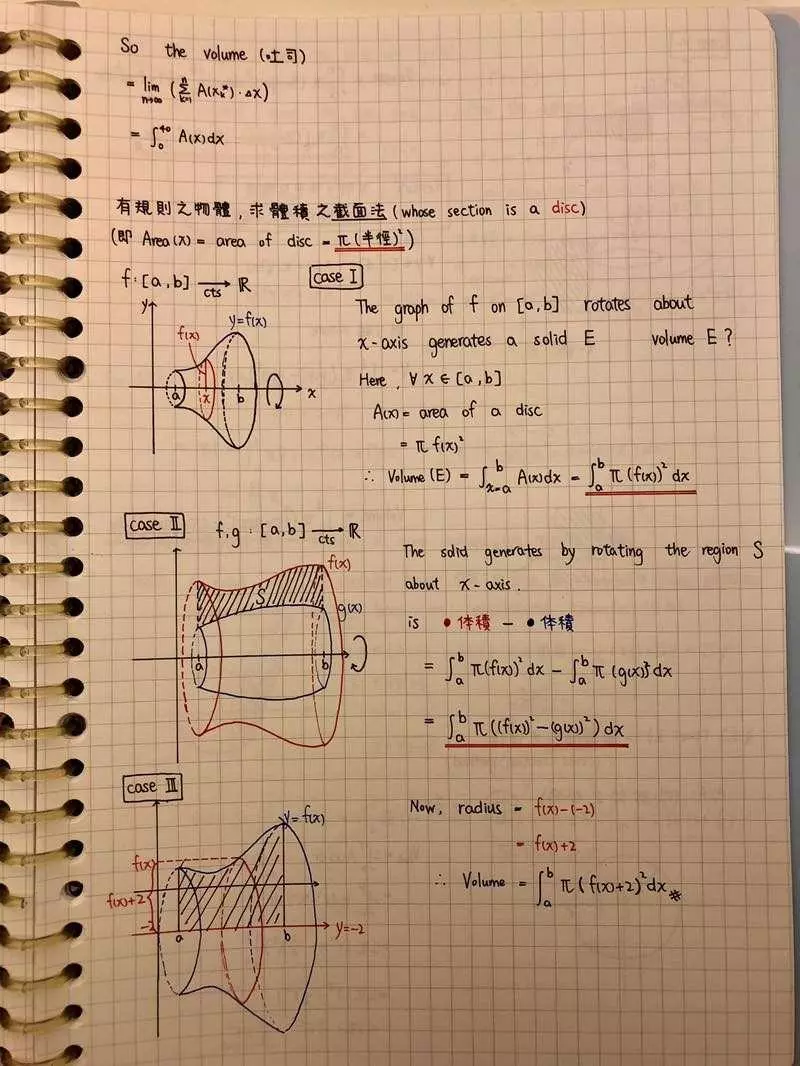 So the volume (吐司)
= lim n→∞ (Σ k=1 n A(xₖ*)·Δx)
= ∫₀⁴⁰ A(x)dx
有規則之物體,求體積之截面法 (whose section is a disc)
(即 Area(x) = area of disc = π(半徑)²)
f:[a,b] →cts ℝ
case I
The graph of f on [a,b] rotates about
x-axis generates a solid E volume E?
Here, ∀ x ∈ [a,b]
A(x) = area of a disc
= π f(x)²
∴ Volume (E) = ∫ₓ₌ₐᵇ A(x)dx = ∫ₐᵇ π(f(x))² dx
y
f(x)
y=f(x)
a
x
b
x
case II
f,g : [a,b] →cts ℝ
The solid generates by rotating the region S
about x-axis.
is •体積 – •体積
= ∫ₐᵇ π(f(x))² dx – ∫ₐᵇ π(g(x))² dx
= ∫ₐᵇ π((f(x))² – (g(x))²) dx
f(x)
S
g(x)
a
b
case III
Now, radius = f(x)-(-2)
= f(x)+2
∴ Volume = ∫ₐᵇ π(f(x)+2)² dx ※
y=f(x)
f(x)
f(x)+2
-2
a
b
y=-2